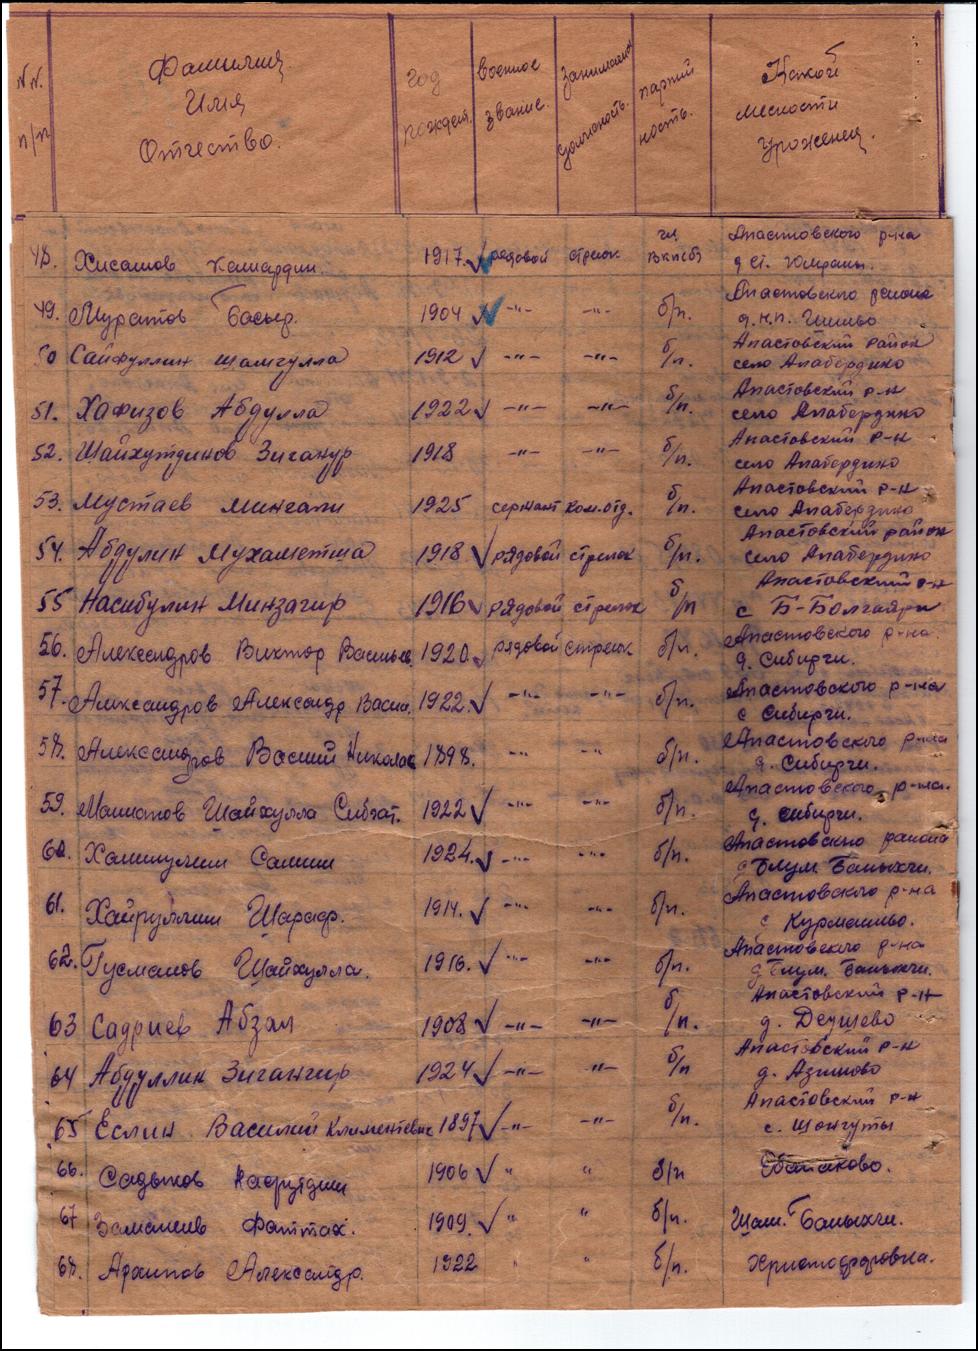 N.N. п/п
Фамилия Имя Отчество.
год рожден.
военное звание.
занимаем. должность.
партий ность.
Какой местности уроженец.
48. Хисамов Камардин. 1917. рядовой стрелок чл ВКП(б) Апастовского р-на
д. ст. Юмралы.
49. Муратов Басыр. 1904 -"- -"- б/п. Апастовского района
д. н.п. Чишьво
50 Сайфуллин Шамгулла 1912 -"- -"- б/п. Апастовский район
село Алабердино
51. Хафизов Абдулла 1922 -"- -"- б/п. Апастовский р-н
село Алабердино
52. Шайхутдинов Зиганур 1918 -"- -"- б/п. Апастовский р-н
село Алабердино
53. Мустаев Мингали 1925 сержант ком.отд. б/п. Апастовский р-н
село Алабердино
54. Абдулин Мухаметша 1918 рядовой стрелок б/п. Апастовский район
село Алабердино
55 Насибулин Минзагир 1916 рядовой стрелок б/п Апастовский р-н
с Б-Болгаяры
56. Александров Виктор Василье 1920. рядовой стрелок б/п. Апастовского р-на.
д. Сибирчи.
57. Александров Александр Васил. 1922. -"- -"- б/п. Апастовского р-на
с Сибирчи.
58. Александров Васлий Николае 1898. -"- -"- б/п. Апастовского р-на
д. Сибирчи.
59. Маманов Шайхулла Сибгат. 1922 -"- -"- б/п. Апастовского р-на.
д. Сибирчи.
60. Хамнулин Самии 1924. -"- -"- б/п. Апастовского района
д Блум. Балыхчи.
61. Хайруллин Шараф. 1914. -"- -"- б/п. Апастовского р-на
с Курмашьво.
62. Гусманов Шайхулла. 1916. -"- -"- б/п. Апастовского р-на
д Блум. Балыхчи.
63 Садриев Абзал 1908 -"- -"- б/п. Апастовский р-н
д. Деушево
64 Абдуллин Зигангир 1924 -"- -"- б/п Апастовский р-н
д. Азимово
65 Еслин Василий Климентевич 1897 -"- -"- б/п. Апастовский р-н
с. Шонгуты
66. Садыков Насрутдин 1906 " " б/п Ебалаково.
67 Заманеев Фаттах. 1909. " " б/п. Шам. Балыхчи.
68. Архипов Александр. 1922 " " б/п. Христофоровка.